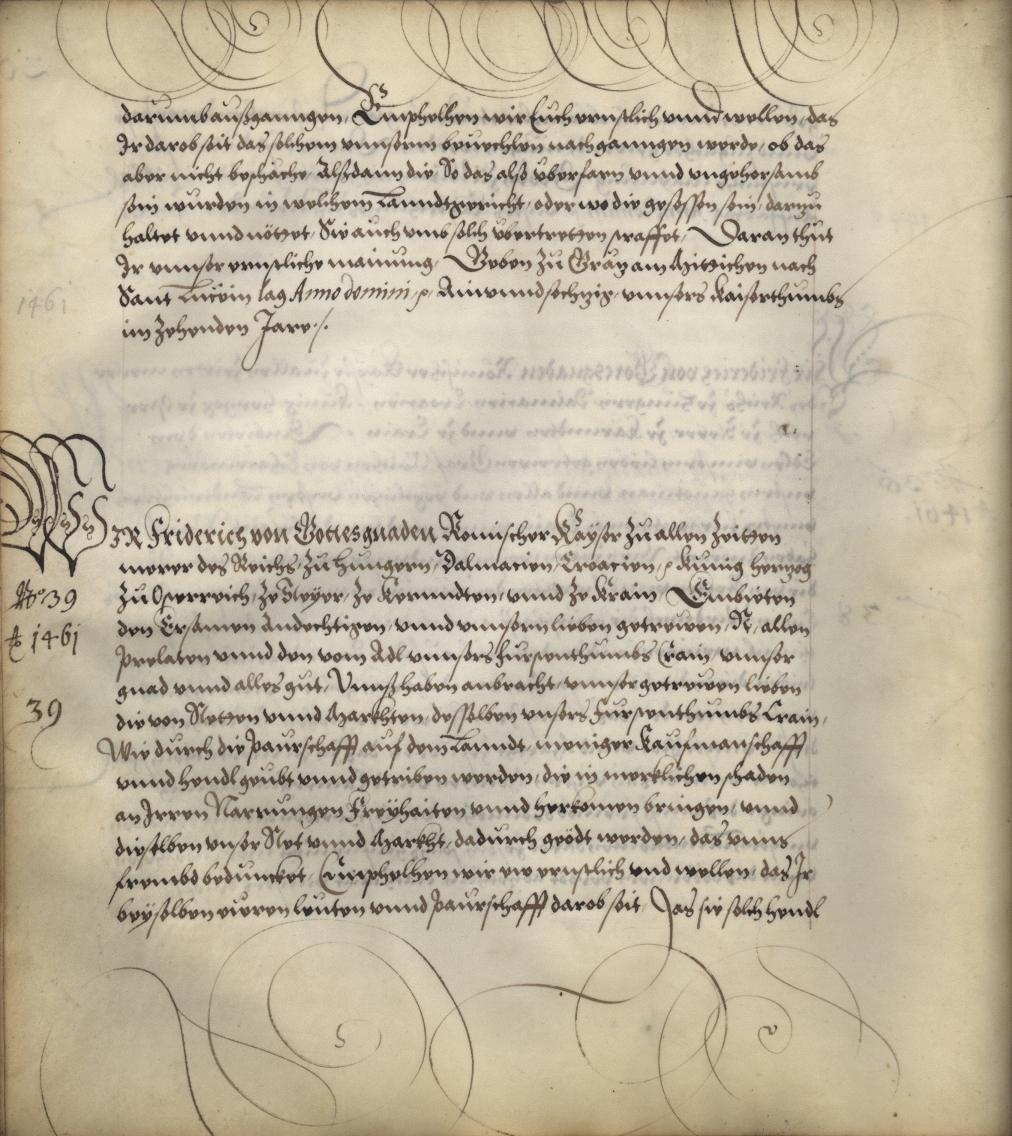 darumb außganngen, Emphelhen wir Euch ernstlich vnnd wellen, das
Ir darob seit das solhem vnnserm beuelhen nachganngen werde, ob das
aber nicht beschäche, Alßdann die, So das also überfarn vnnd vngehorsamb
sein wurden in welchem Lanndtgericht, oder wo die gesessen sein, darzu
haltet vnnd nöttet, Sie auch vmb solch übertretten straffet, Daran thut
Ir vnnser ernstliche mainung, Geben zu Grätz am Mittichen nach
Sant Lucein tag Anno domini, Ainvnndsechzig, vnnsers Kaiserthumbs
im Zehenden Jare ./.
1461
WIR Friderich von Gottesgnaden Romischer Kayser zu allen Zeitten
merer des Reichs, zu Hungern, Dalmacien, Croacien, Kunig hertzog
No 39
zu Osterreich, ze Steyer, ze Kernndten, vnnd ze Krain, Embieten
Ao 1461
den Ersamen Andechtigen, vnnd vnnsern lieben getrewen, N, allen
Prelaten vnnd den vom Adl vnnsers Furstenthumbs Crain, vnnser
gnad vnnd alles gut, Vnnß haben anbracht, vnnser getrewen lieben
39
die von Stetten vnnd Markhten, desselben vnsers Furstenthumbs Crain,
Wie durch die Paurschafft auf dem Lanndt, meniger Kaufmanschafft
vnnd hendl geubt vnnd getriben werden, die in merklichen schaden
an Irren Narrungen Freyhaiten vnnd herkomen bringen, vnnd
dieselben vnser Stet vnnd Markht, dadurch geödt werden, das vnns
frembd beduncket, Emphelhen wir ew ernstlich vnd wellen, das Ir
bey selben eweren leuten vnnd Paurschafft darob seit, Das sie solch hendl